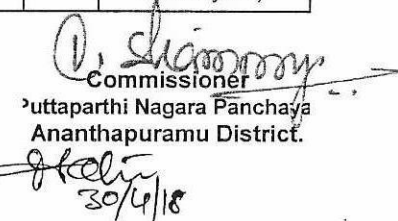 Commissioner
Puttaparthi Nagara Panchaya
Ananthapuramu District.
30/4/18